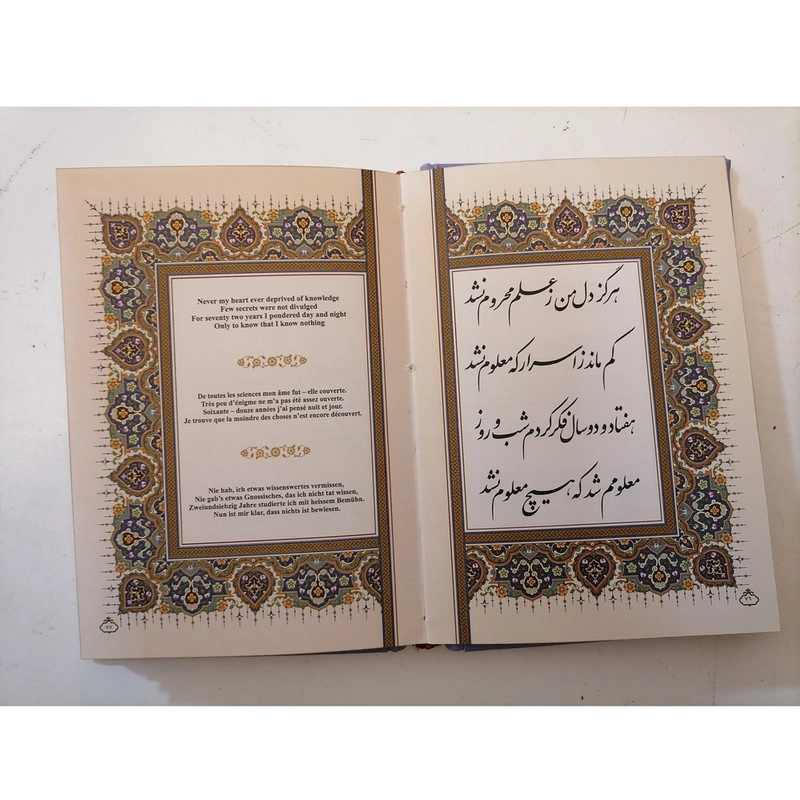 هرگز دل من ز علم محروم نشد
کم ماند ز اسرار که معلوم نشد
هفتاد و دو سال فکر کردم شب و روز
معلومم شد که هیچ معلوم نشد
۲۱
Never my heart ever deprived of knowledge
Few secrets were not divulged
For seventy two years I pondered day and night
Only to know that I know nothing
De toutes les sciences mon âme fut – elle couverte.
Très peu d'énigme ne m'a pas été assez ouverte.
Soixante – douze années j'ai pensé nuit et jour.
Je trouve que la moindre des choses n'est encore découvert.
Nie hab, ich etwas wissenswertes vermissen,
Nie gab's etwas Gnossisches, das ich nicht tat wissen,
Zweiundsiebzig Jahre studierte ich mit heissem Bemühn.
Nun ist mir klar, dass nichts ist bewiesen.
۲۲